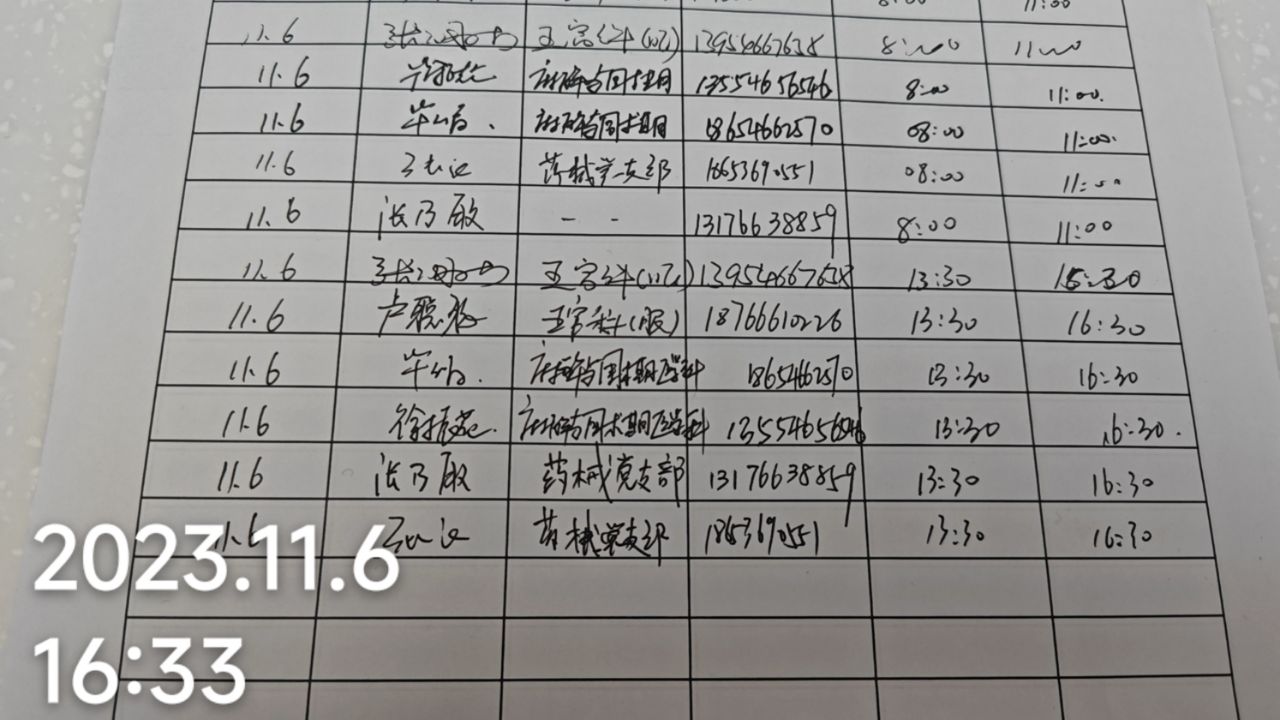 8:00 11:00
11.6 13954667638 8:00 11:00
11.6 麻醉与围术期 13554656546 8:00 11:00.
11.6 麻醉与围术期 18654662570 08:00 11:00.
11.6 药械党支部 18653690551 08:00 11:00
11.6 张乃殿 - - 13176638859 8:00 11:00
11.6 13954667638 13:30 15:30
11.6 18766610226 13:30 16:30
11.6 麻醉与围术期医学科 18654662570 13:30 16:30
11.6 徐振龙. 麻醉与围术期医学科 13554656546 13:30 16:30.
11.6 张乃殿 药械党支部 13176638859 13:30 16:30
11.6 药械党支部 18653690551 13:30 16:30
2023.11.6
16:33